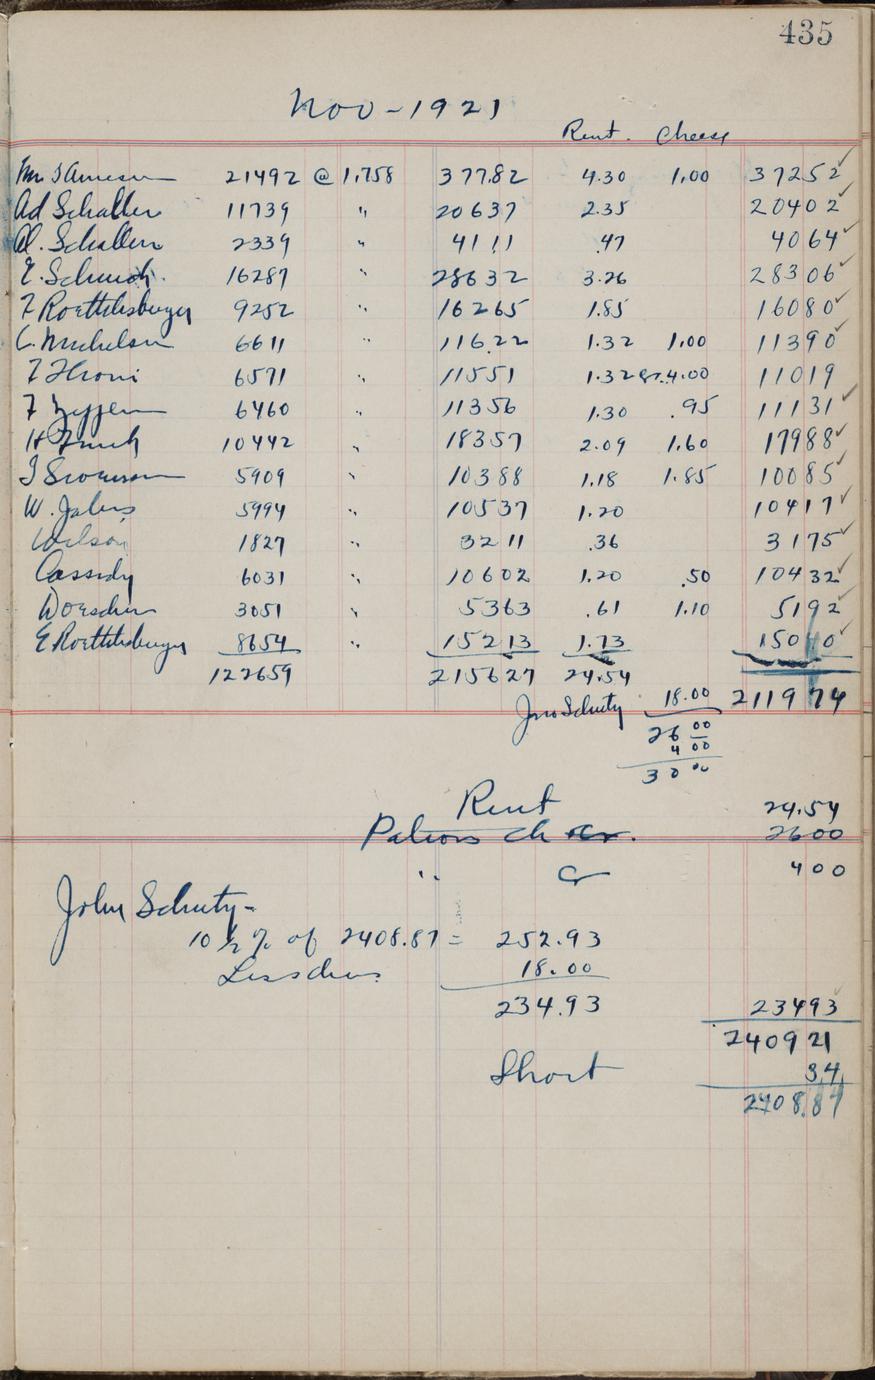 435
Nov - 1921
Rent. Cheese
Wm Jameson 21492 @ 1.758 377.82 4.30 1.00 372 52 ✓
Ad Schaller 11739 " 206 37 2.35 204 02 ✓
Al. Schaller 2339 " 41 11 .47 40 64 ✓
E. Schmoh. 16287 " 286 32 3.26 283 06 ✓
F Roethlisberger 9252 " 162 65 1.85 160 80 ✓
C. Michelson 6611 " 116.22 1.32 1.00 113 90 ✓
F 6571 " 115 51 1.32 cr. 4.00 110 19
F 6460 " 113 56 1.30 .95 111 31 ✓
H 10442 " 183 57 2.09 1.60 179 88 ✓
5909 " 103 88 1.18 1.85 100 85 ✓
W. Jabers 5994 " 105 37 1.20 104 17 ✓
Wilson 1827 " 32 11 .36 31 75 ✓
Cassidy 6031 " 106 02 1.20 .50 104 32 ✓
Woescher 3051 " 53 63 .61 1.10 51 92 ✓
E Roethlisberger 8654 " 152 13 1.73 150 40 ✓
122659 2156 27 24.54
Jno Schuty 18.00 2119 74
26 00
4 00
30 00
Rent 24.54
Patrons ch cr. 26 00
" cr 4 00
John Schuty -
10 ½ % of 2408.87 = 252.93
Less chees 18.00
234.93 234 93
2409 21
Short 34
2408.87